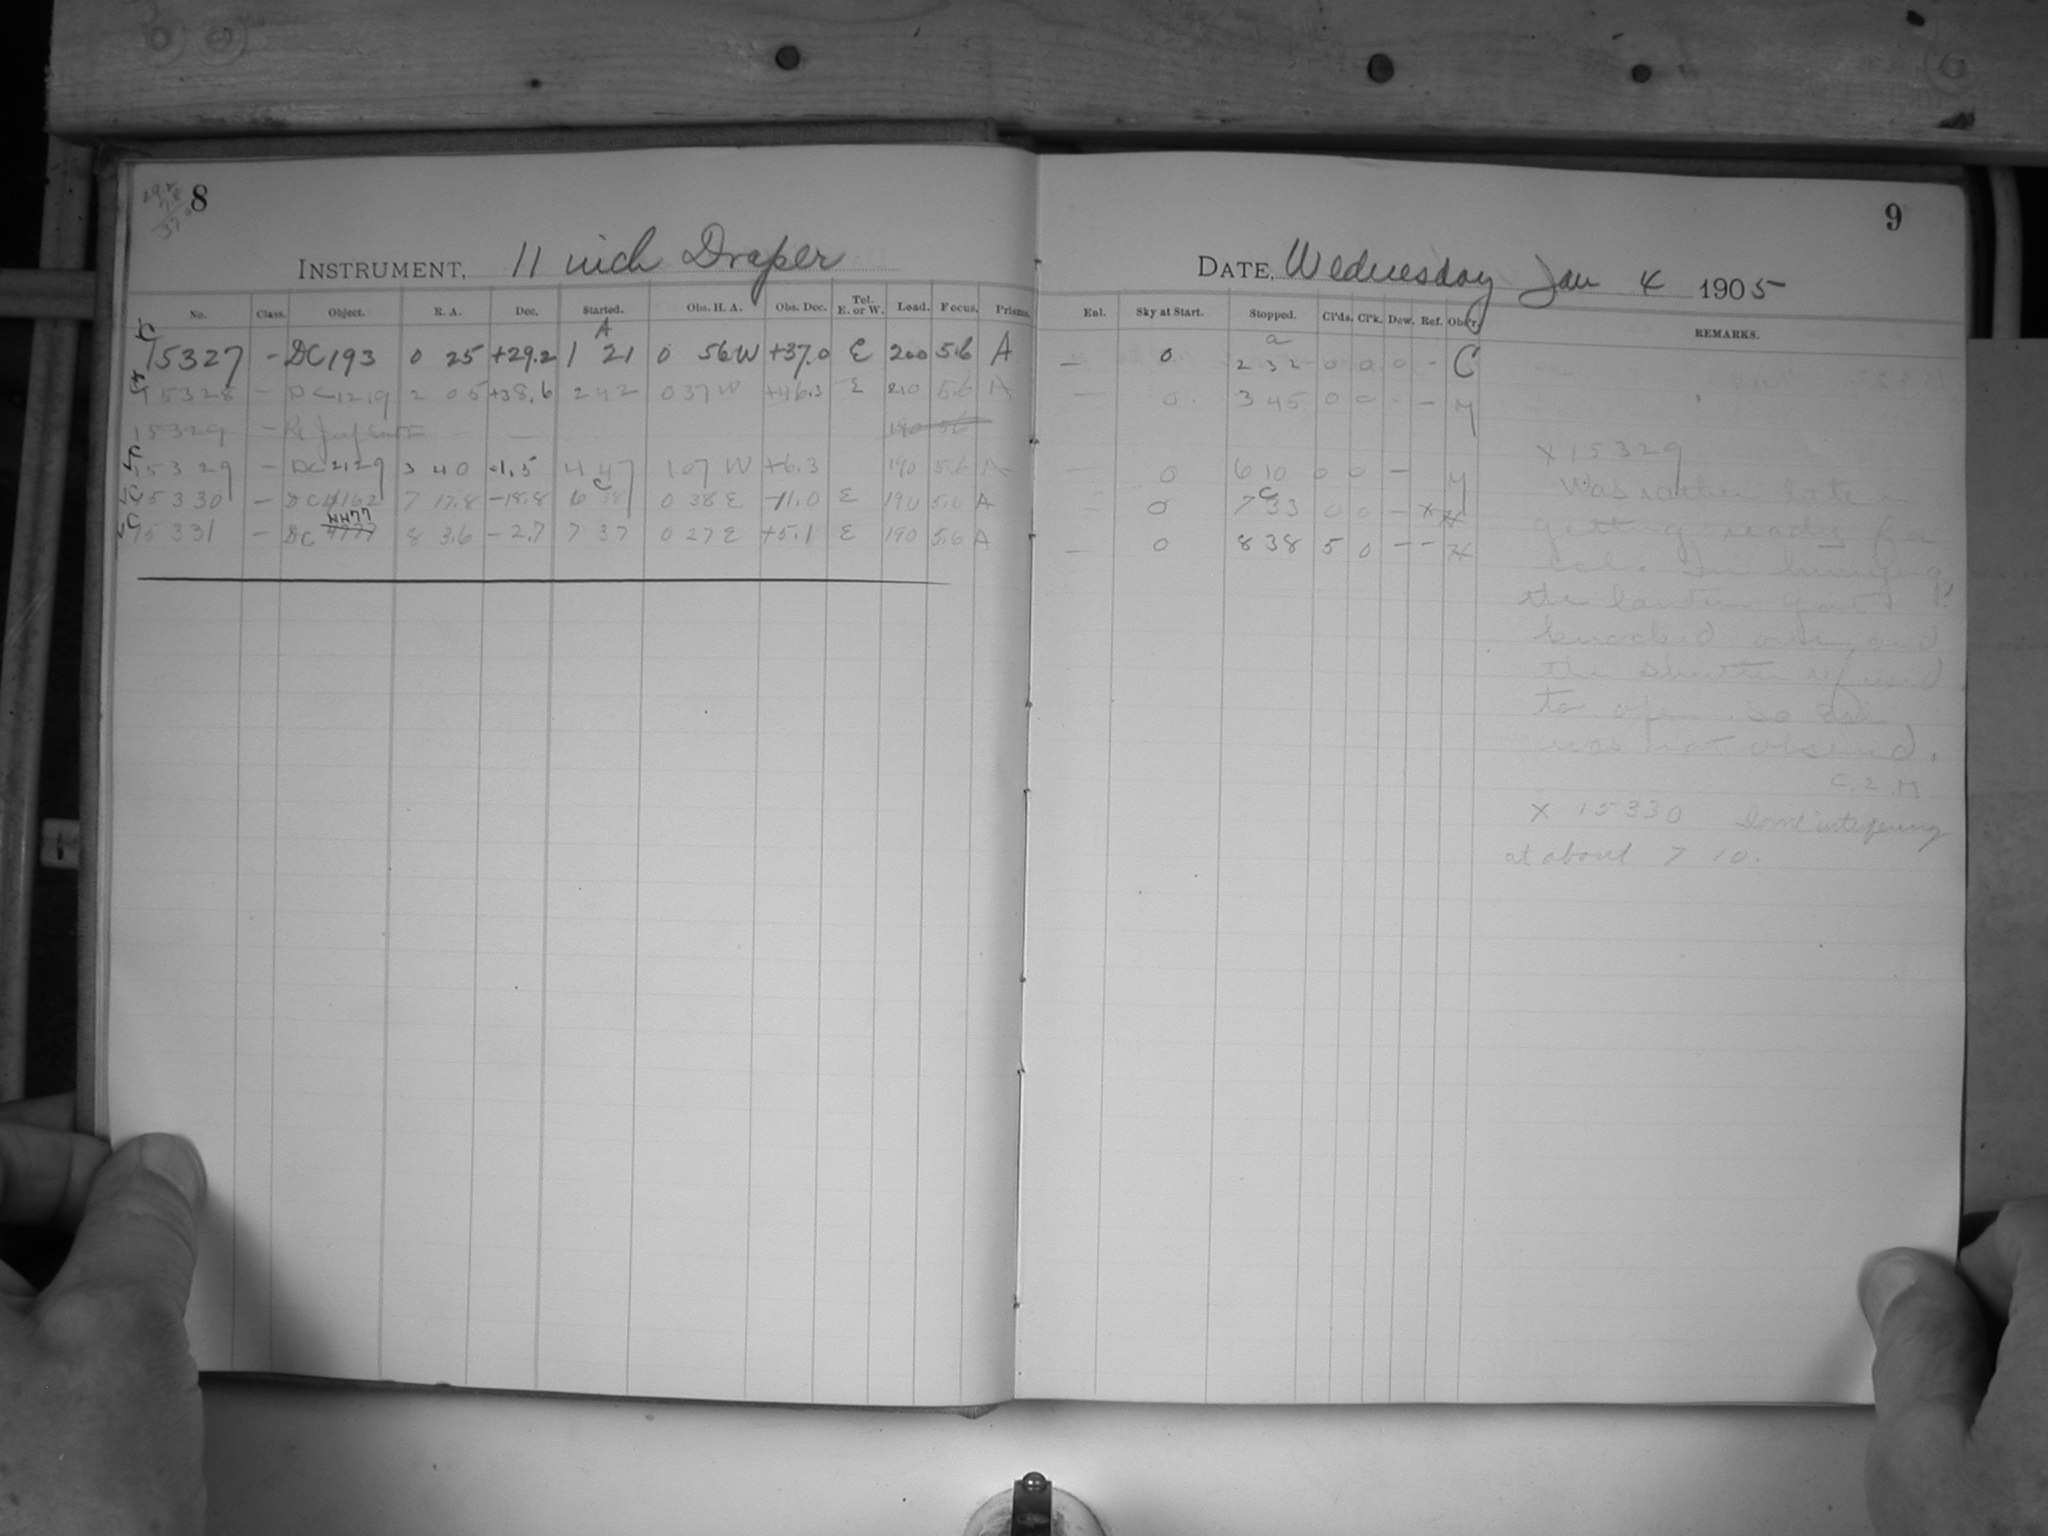 8
INSTRUMENT, 11 inch Draper
No. Class. Object. R. A. Dec. Started. Obs. H. A. Obs. Dec. Tel. E. or W. Load. Focus. Prisms.
A
15327 - DC 193 0 25 +29.2 1 21 0 56 W +37.0 E 200 5.6 A
15328 - DC 1219 2 05 +38.6 2 42 0 37 W +46.3 E 210 5.6 A
15329 -
15329 - DC 2129 3 40 -1.5 4 47 1 07 W +6.3 190 5.6 A
15330 - DC 4162 7 17.8 -18.8 6 38 0 38 E -11.0 E 190 5.6 A
4477
15331 - DC 8 3.6 -2.7 7 37 0 27 E +5.1 E 190 5.6 A
9
DATE, Wednesday Jan 4 1905
Enl. Sky at Start. Stopped. Cl'ds. Cl'k. Dew. Ref. Obs'r. REMARKS.
a
— 0 2 32 0 0 0 - C
— 0 3 45 0 0 - - M
— 0 6 10 0 0 - M
0 7 33 0 0 - x H
— 0 8 38 5 0 - - H
X 15329
Was rather late in
getting ready for
the lantern got
knocked over, and
the shutter refused
to open. So
was not observed.
C. E. M
X 15330 Some interfering
at about 7 10.